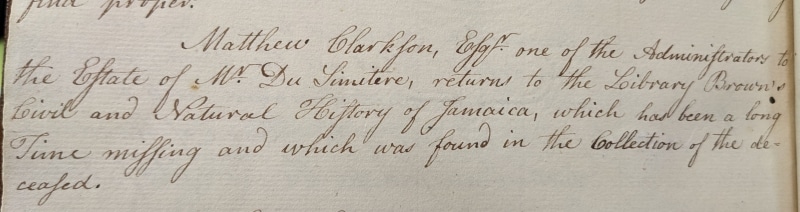 find proper.
Matthew Clarkson, Esqr. one of the Administrators to
the Estate of Mr. Du Simitere, returns to the Library Brown's
Civil and Natural History of Jamaica, which has been a long
Time missing and which was found in the Collection of the de-
ceased.